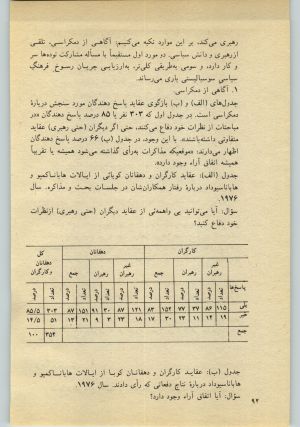 رهبری می‌کند، بر این موارد تکیه می‌کنیم: آگاهی از دمکراسی، تلقی
از رهبری و دانش سیاسی. دو مورد اول مستقیماً با مسأله مشارکت توده‌ها سر
و کار دارد، و سومی به‌طریقی کلی‌تر، به‌ارزیابی جریان رسوخ فرهنگ
سیاسی سوسیالیستی یاری می‌رساند.
۱. آگاهی از دمکراسی
جدول‌های (الف) و (ب) بازگوی عقاید پاسخ دهندگان مورد سنجش دربارهٔ
دمکراسی است. در جدول اول که ۳۰۳ نفر یا ۸۵ درصد پاسخ دهندگان «در
مباحثات از نظرات خود دفاع می‌کنند، حتی اگر دیگران (حتی رهبری) عقاید
متفاوتی داشته‌باشند». با این وجود، در جدول (ب) ۶۶ درصد پاسخ دهندگان
اظهار می‌دارند: «موقعیکه مذاکرات به‌رأی گذاشته می‌شود همیشه یا تقریباً
همیشه اتفاق آراء وجود دارد».
جدول (الف): عقاید کارگران و دهقانان کوبائی از ایالات هاباناکمپو و
هاباناسیوداد دربارهٔ رفتار همکاران‌شان در جلسات بحث و مذاکره. سال ۱۹۷۶
سؤال: آیا می‌توانید بی واهمه‌ئی از عقاید دیگران (حتی رهبری) ازنظرات
خود دفاع کنید؟
کارگران دهقانان کل
غیر رهبران رهبران جمع غیر رهبران رهبران جمع دهقانان وکارگران
پاسخ‌ها تعداد درصد تعداد درصد تعداد درصد تعداد درصد تعداد درصد تعداد درصد تعداد درصد
بلی ۱۱۵ ۸۶ ۳۷ ۷۷ ۱۵۲ ۸۳ ۱۲۱ ۸۷ ۳۰ ۹۱ ۱۵۱ ۸۷ ۳۰۳ ۸۵/۵
خیر ۱۹ ۱۴ ۱۱ ۲۳ ۳۰ ۱۷ ۱۸ ۱۳ ۳ ۹ ۲۱ ۱۳ ۵۱ ۱۴/۵
جمع ۳۵۴ ۱۰۰
جدول (ب): عقاید کارگران و دهقانان کوبا از ایالات هاباناکمپو و
هاباناسیوداد دربارهٔ نتایج دفعاتی که رأی دادند. سال ۱۹۷۶
سؤال: آیا اتفاق آراء وجود دارد؟
۹۲